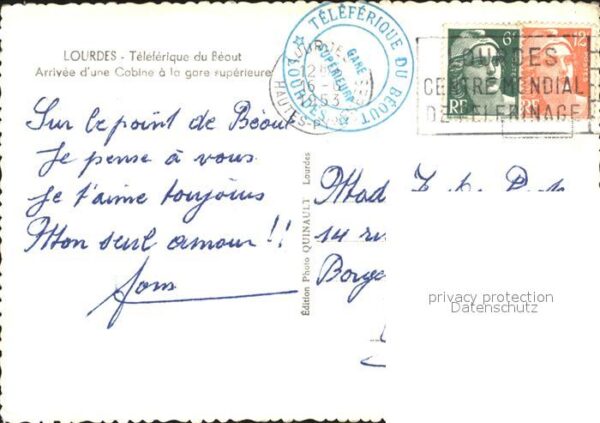 LOURDES - Téleférique du Béout
Arrivée d'une Cabine à la gare supérieure
TÉLÉFÉRIQUE DU BÉOUT
LOURDES
GARE
SUPÉRIEURE
6F
12F
RF
RF
LOURDES
CENTRE MONDIAL
DE PÈLERINAGE
Sur le point de Béout
Je pense à vous
Je t'aime toujours
Mon seul amour !!
Édition Photo QUINAULT Lourdes
Mad
14 ru
privacy protection
Datenschutz